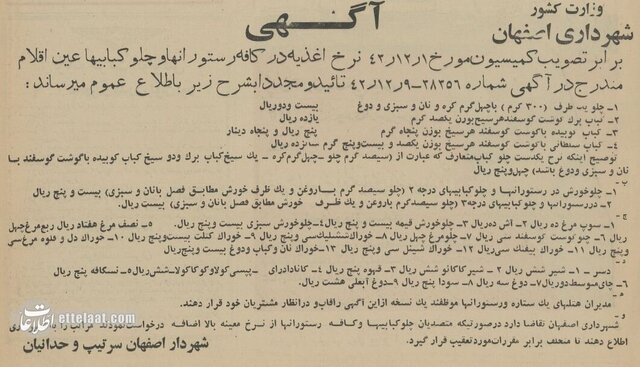 وزارت کشور
شهرداری اصفهان
آگهی
برابر تصویب کمیسیون مورخ ۴۲٫۱۲٫۱ نرخ اغذیه در کافه رستورانها و چلو کبابیها عین اقلام
مندرج در آگهی شماره ۲۸۲۵۶-۴۲٫۱۲٫۹ تائید و مجددا بشرح زیر باطلاع عموم میرساند:
۱- چلو یک ظرف (۳۰۰ گرم) با چهل گرم کره و نان و سبزی و دوغ بیست و دو ریال
۲- کباب برک گوشت گوسفند هر سیخ بوزن یکصد گرم یازده ریال
۳- کباب کوبیده با گوشت گوسفند هر سیخ بوزن پنجاه گرم پنج ریال و پنجاه دینار
۴- کباب سلطانی با گوشت گوسفند هر سیخ بوزن یکصد و بیست و پنج گرم شانزده ریال
توضیح اینکه نرخ یکدست چلو کباب متعارف که عبارت از (سیصد گرم چلو - چهل گرم کره - یک سیخ کباب برک و دو سیخ کباب کوبیده با گوشت گوسفند با
نان و سبزی و دوغ باشد) چهل و پنج ریال
ب-
۱- چلو خورش در رستورانها و چلو کبابیهای درجه ۲ (چلو سیصد گرم با روغن و یک ظرف خورش مطابق فصل با نان و سبزی) بیست و پنج ریال
۲- در رستورانها و چلو کبابیهای درجه ۳ (چلو سیصد گرم با روغن و یک ظرف خورش مطابق فصل با نان و سبزی) بیست ریال.
ج-
۱- سوپ مرغ ده ریال ۲- آش ده ریال ۳- چلو خورش قیمه بیست و پنج ریال ۴- چلو خورش سبزی بیست و پنج ریال. ۵- نصف مرغ هفتاد ریال ربع مرغ چهل
ریال ۶- چلو گوشت گوسفند سی ریال ۷- چلو مرغ چهل ریال ۸- خوراک ششلیک سی و پنج ریال ۹- خوراک کتلت بیست و پنج ریال ۱۰- خوراک دل و قلوه مرغ سی
و پنج ریال ۱۱- خوراک بیفتک سی ریال ۱۲- خوراک شنیتسل سی و پنج ریال ۱۳- خوراک نان و کباب و دوغ بیست و پنج ریال
دسر - ۱- شیر شش ریال ۲- شیر کاکائو شش ریال ۳- قهوه پنج ریال ۴- کانادادرای - پپسی کولا و کوکاکولا شش ریال ۵- نسکافه پنج ریال
۶- چای متوسط دو ریال ۷- دوغ سه ریال ۸- سودا پنج ریال ۹- دوغ آبعلی هشت ریال.
مدیران هتلهای یک ستاره و رستورانها موظفند یک نسخه از این آگهی را قاب و در انظار مشتریان خود قرار دهند.
و-
شهرداری اصفهان تقاضا دارد در صورتیکه متصدیان چلو کبابیها و کافه رستورانها از نرخ معینه بالا اضافه درخواست نمودند مراتب را
دهند تا متخلف برابر مقررات مورد تعقیب قرار گیرد.
شهردار اصفهان سرتیپ وحدانیان
اطلاعات
ettelaat.com